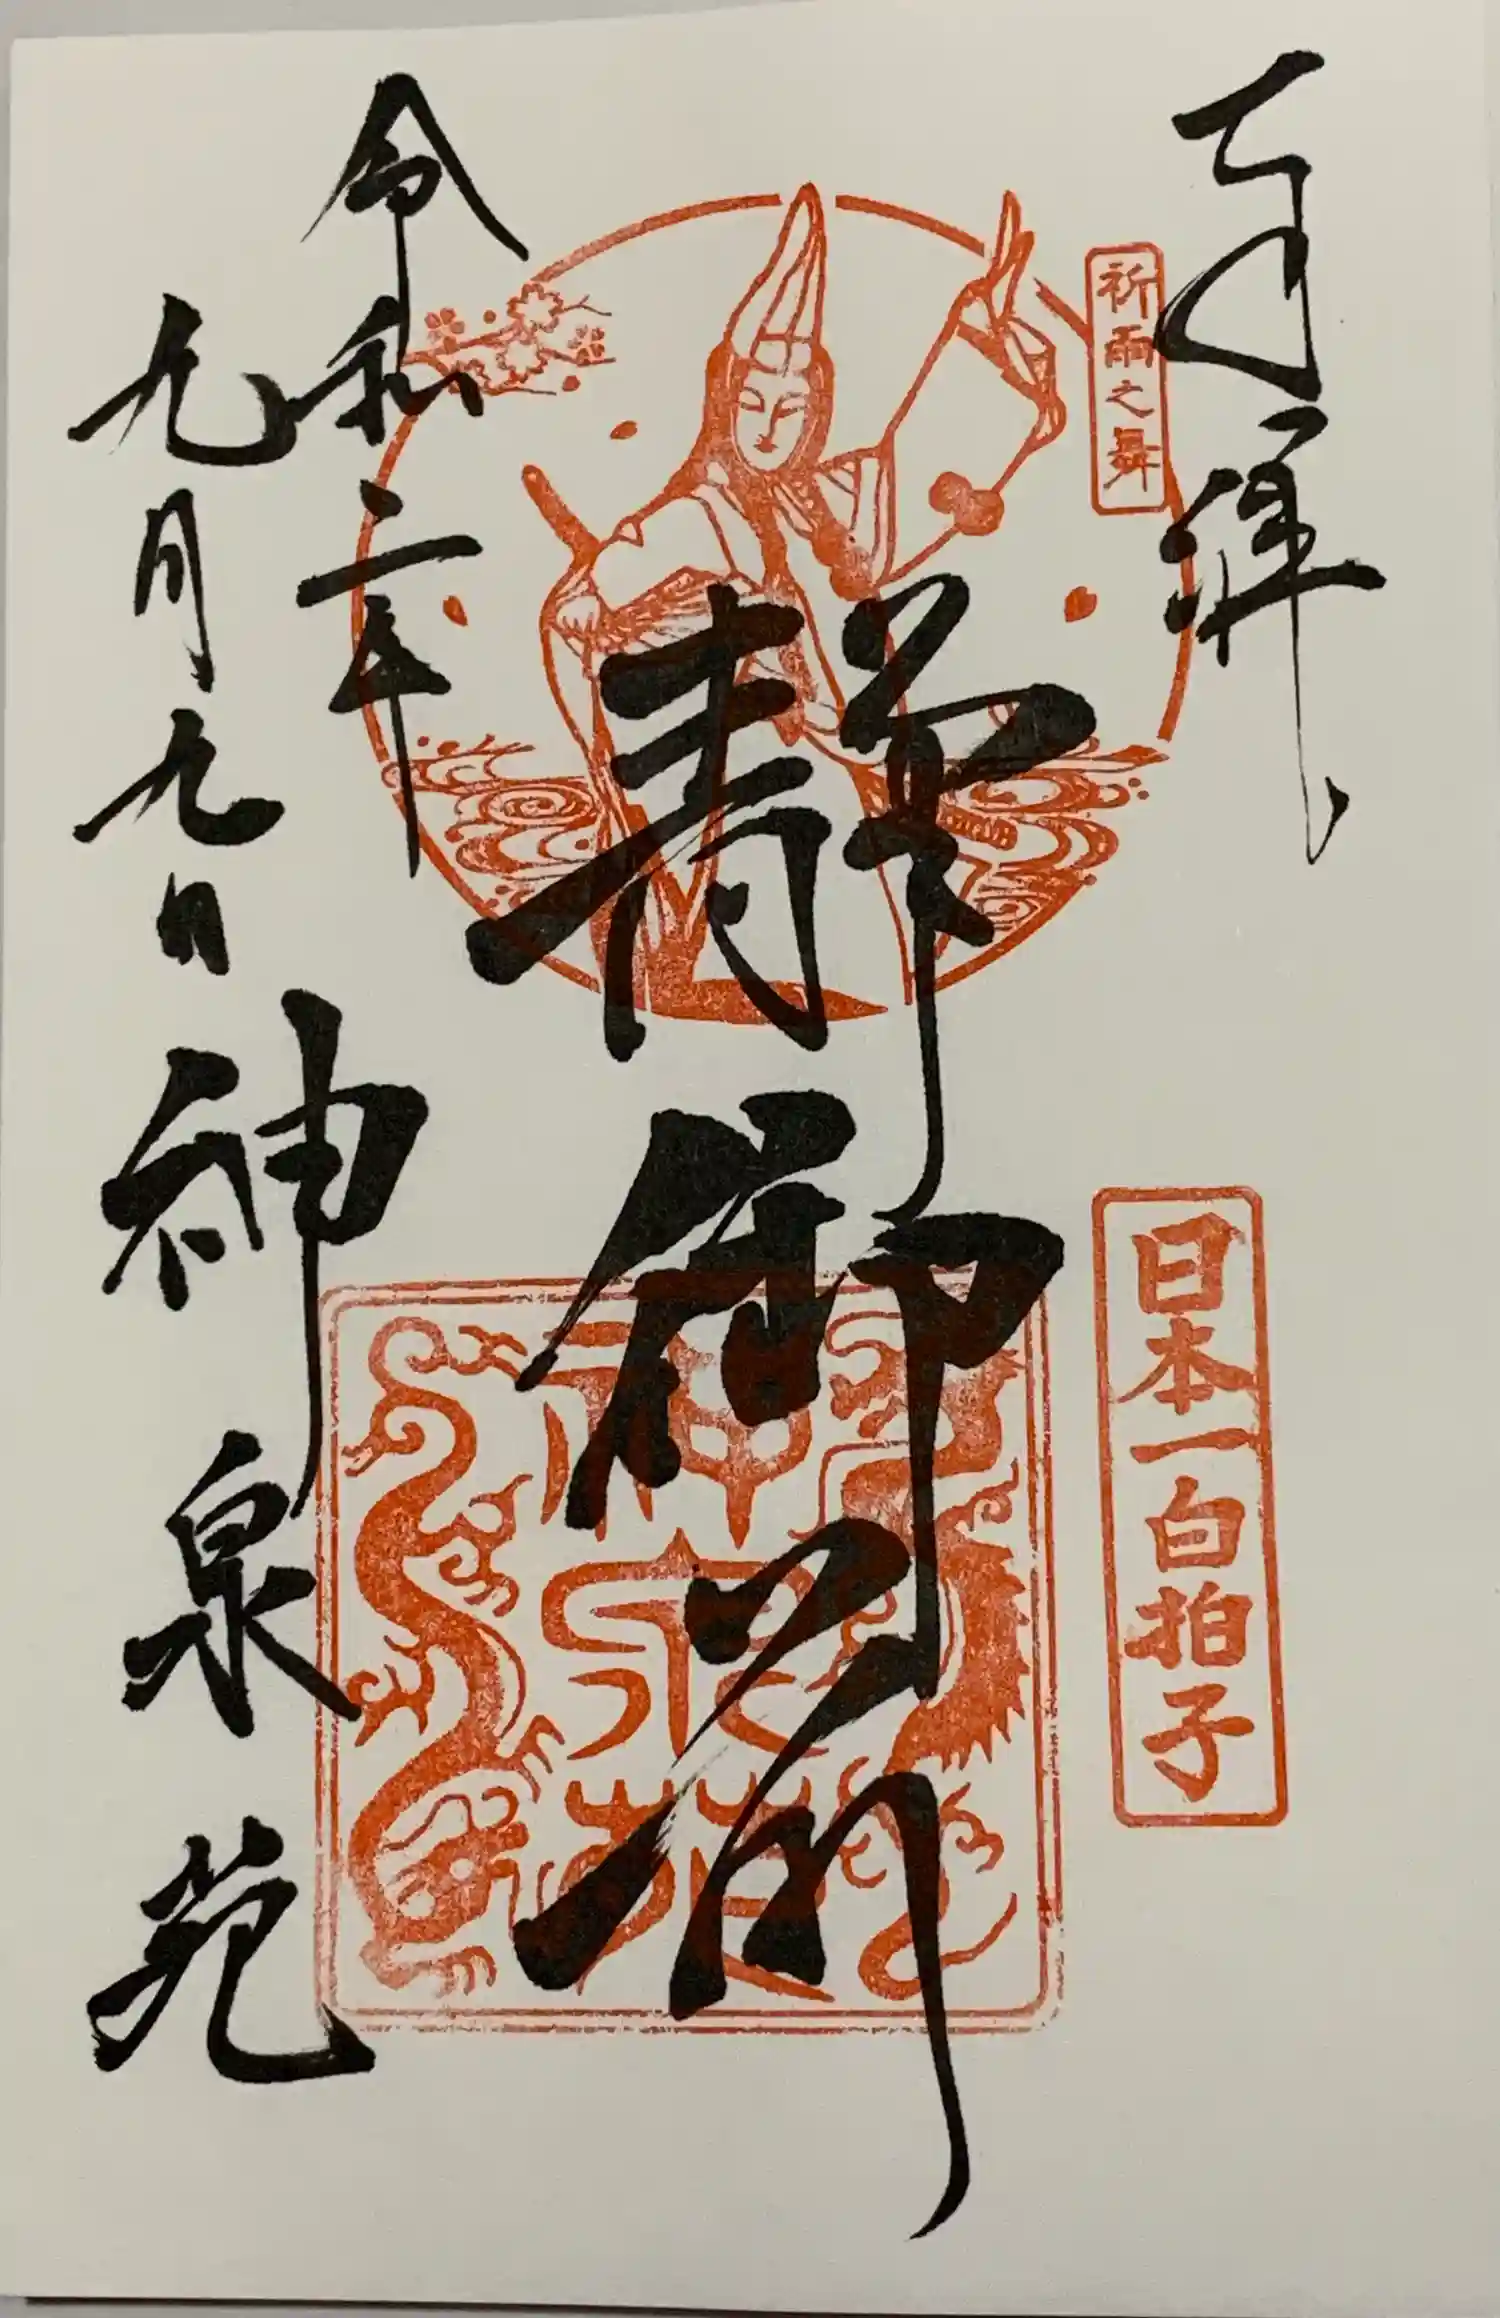 奉拝
祈雨之舞
日本一白拍子
静御前
令和二年
九月九日
神泉苑
神泉苑